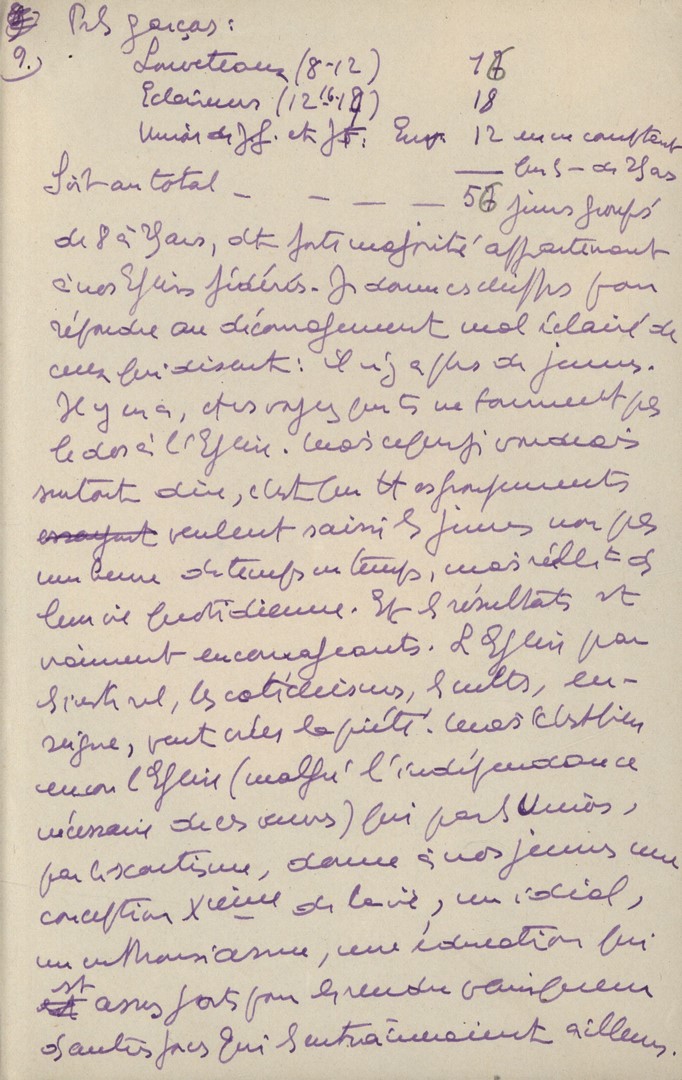 9.) Pr les garçons :
Louveteaux (8-12) 16
Eclaireurs (12-16-19) 18
Unions de J.G. et J.F. Env. 12 en en comptant
les - de 25 ans
Soit au total _ _ _ _ 56 jeunes groupés
de 8 à 25 ans, dt forte majorité appartenant
à nos Eglises fédérées. Je donne ces chiffres pour
répondre au découragement mal éclairé de
ceux qui disent : il n'y a plus de jeunes.
Il y en a, et vs voyez qu'ils ne tournent pas
le dos à l'Eglise. Mais ce que je voudrais
surtout dire, c'est que ts ces groupements
essayent veulent saisir les jeunes non pas
une heure de temps en temps, mais réellt ds
leur vie quotidienne. Et les résultats st
vraiment encourageants. L'Eglise par
les catéchismes, les cultes, en-
seigne, veut créer la piété. Mais c'est bien
encore l'Eglise (malgré l'indépendance
nécessaire de ces œuvres) qui par les Unions,
par le scoutisme, donne à nos jeunes une
conception Xième de la vie, un idéal,
un enthousiasme, une éducation qui
st assez forts pour les rendre vainqueurs
d'autres forces qui les entraîneraient ailleurs.